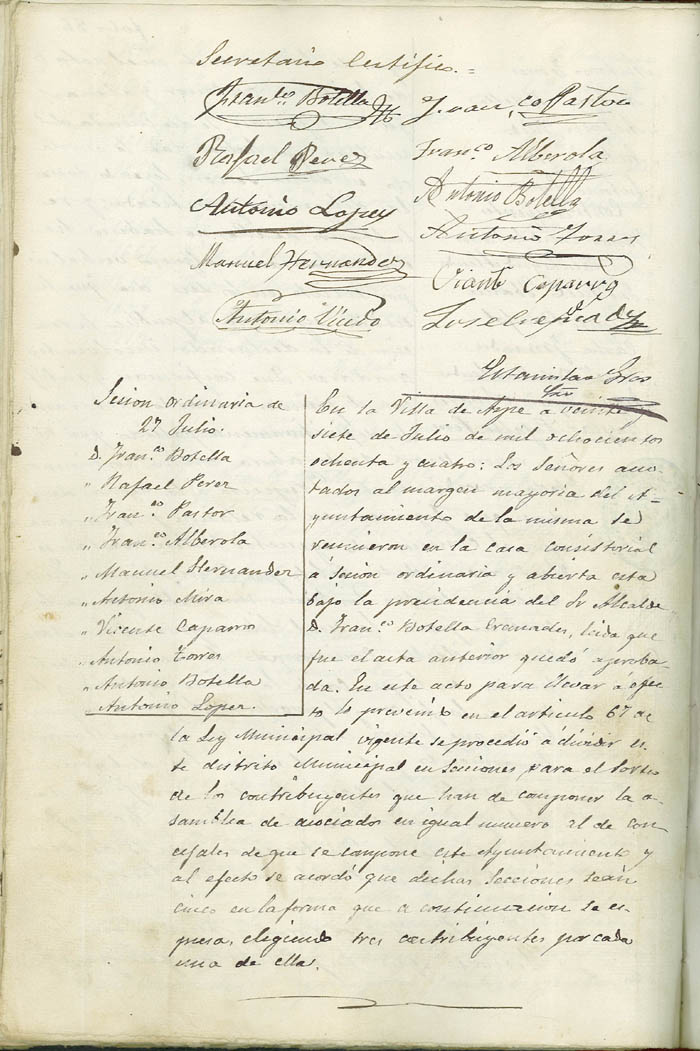 Secretario Certifico.=
Fran.co Botella
Fran.co Pastor
Rafael Perez
Fran.co Alberola
Antonio Lopez
Antonio Botella
Manuel Hernandez
Antonio Torres
Vicente Caparros
Antonio
Jose
Estanislao
Sesion ordinaria de
27 Julio.
D. Fran.co Botella
" Rafael Perez
" Fran.co Pastor
" Fran.co Alberola
" Manuel Hernandez
" Antonio Mira
" Vicente Caparros
" Antonio Torres
" Antonio Botella
" Antonio Lopez.
En la Villa de Aspe a veinte y
siete de Julio de mil ochocientos
ochenta y cuatro: Los Señores ano-
tados al margen mayoria del A-
yuntamiento de la misma se
reunieron en la casa consistorial
á sesion ordinaria y abierta esta
bajo la presidencia del Sr Alcalde
D. Fran.co Botella Cremades, leida que
fue el acta anterior quedó aproba-
da. En este acto para llevar á efec-
to lo prevenido en el articulo 67 de
la Ley Municipal vigente se procedió á dividir es-
te distrito Municipal en Secciones para el sorteo
de los contribuyentes que han de componer la a-
samblea de asociados en igual numero al de con-
cejales de que se compone este Ayuntamiento y
al efecto se acordó que dichas Secciones sean
cinco en la forma que a continuacion se es-
presa, eligiendo tres contribuyentes por cada
una de ella.